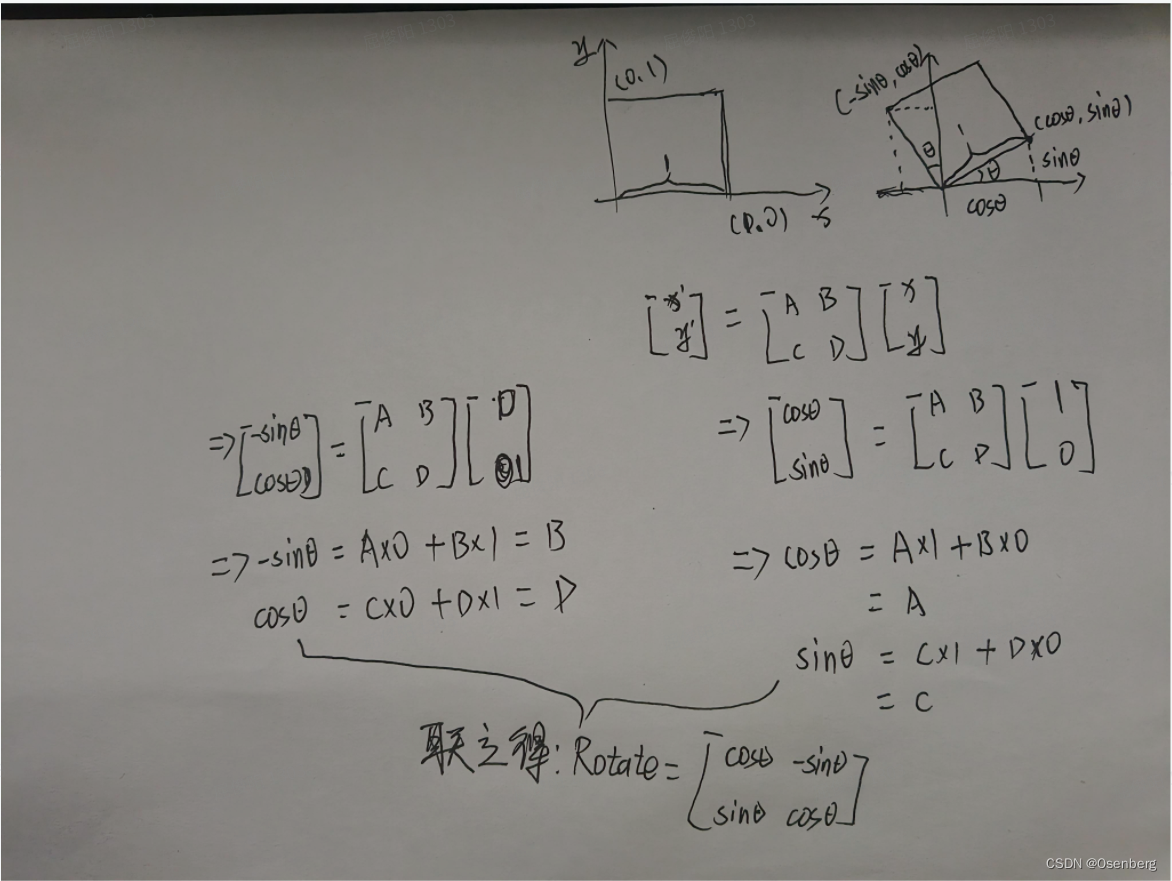 y
(0,1)
1
(1,0) x
(-sinθ, cosθ)
(cosθ, sinθ)
θ
1
θ
sinθ
cosθ
[x' y'] = [A B C D] [x y]
=> [-sinθ cosθ] = [A B C D] [0 1]
=> [cosθ sinθ] = [A B C D] [1 0]
=> -sinθ = A×0 + B×1 = B
cosθ = C×0 + D×1 = D
=> cosθ = A×1 + B×0
= A
sinθ = C×1 + D×0
= C
联立得: Rotate = [cosθ -sinθ sinθ cosθ]
CSDN @Osenberg